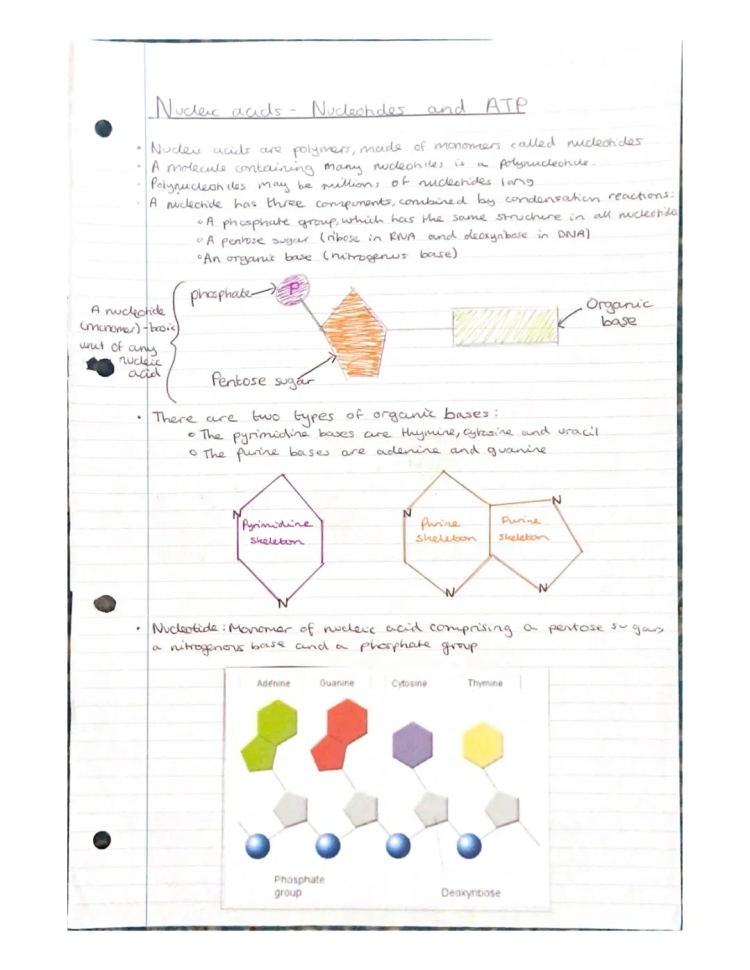 Nucleic acids - Nucleotides and ATP
• Nucleic acids are polymers, made of monomers called nucleotides
• A molecule containing many nucleotides is a polynucleotide.
• Polynucleotides may be millions of nucleotides long
• A nucleotide has three components, combined by condensation reactions:
o A phosphate group, which has the same structure in all nucleotides
o A pentose sugar (ribose in RNA and deoxyribose in DNA)
o An organic base (nitrogenus base)
phosphate
P
Organic
base
A nucleotide
(monomer) - basic
unit of any
nucleic
acid
Pentose sugar
• There are two types of organic bases:
o The pyrimidine bases are thymine, cytosine and uracil
o The purine bases are adenine and guanine
N
Pyrimidine
skeleton
N
N
Purine
skeleton
N
N
Purine
skeleton
N
• Nucleotide: Monomer of nucleic acid comprising a pentose sugar,
a nitrogenous base and a phosphate group
Adenine Guanine Cytosine Thymine
Phosphate
group
Deoxyribose